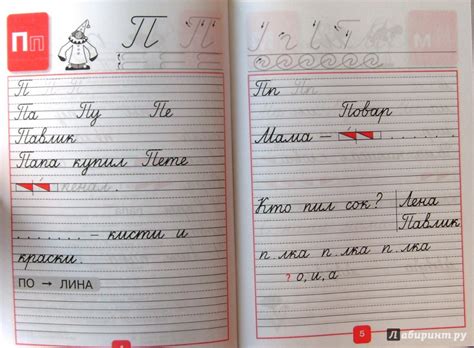 Пп П П
П
Па Пу Пе
Павлик
Папа купил Пете
пенал.
. . . . . . . – кисти и
краски.
ПО → ЛИНА
Пп
Повар
Мама – . . . . . . . .
Кто пил сок? Лена
Павлик
п..лка п..лка п..лка
? о, и, а
5
Лабиринт.ру